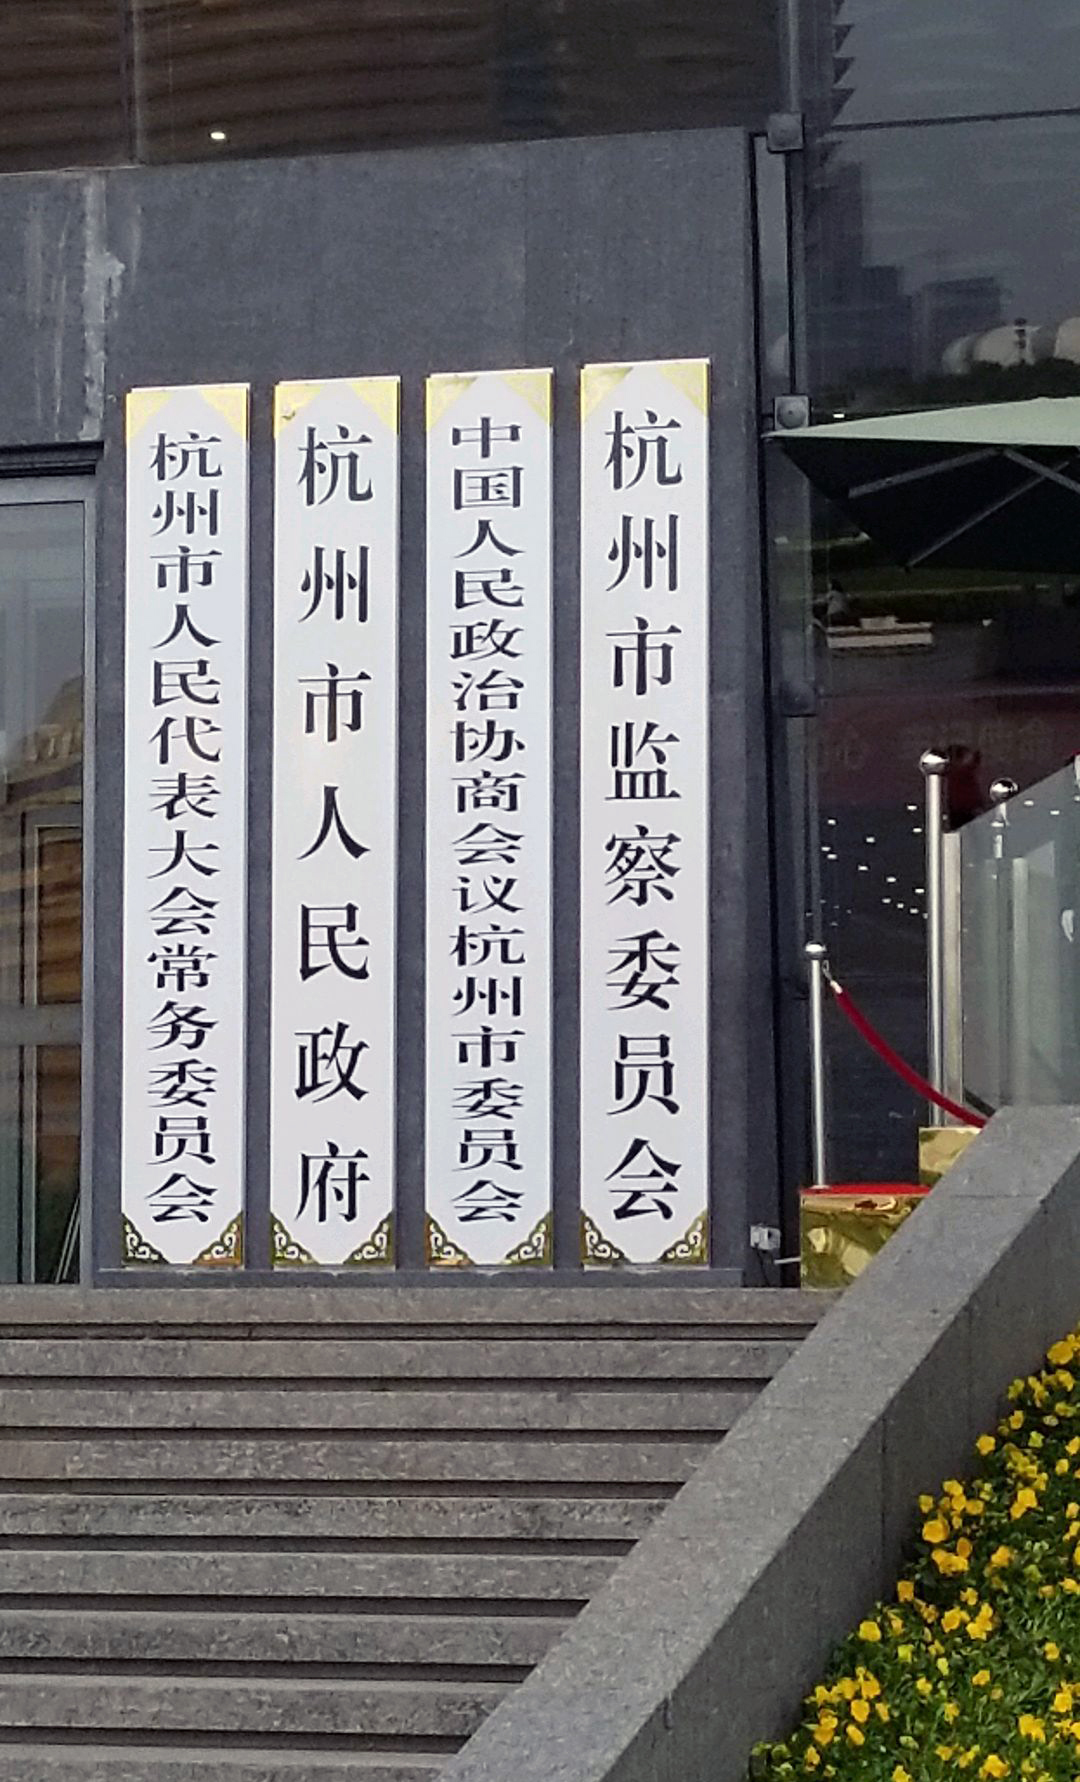 杭州市人民代表大会常务委员会
杭州市人民政府
中国人民政治协商会议杭州市委员会
杭州市监察委员会